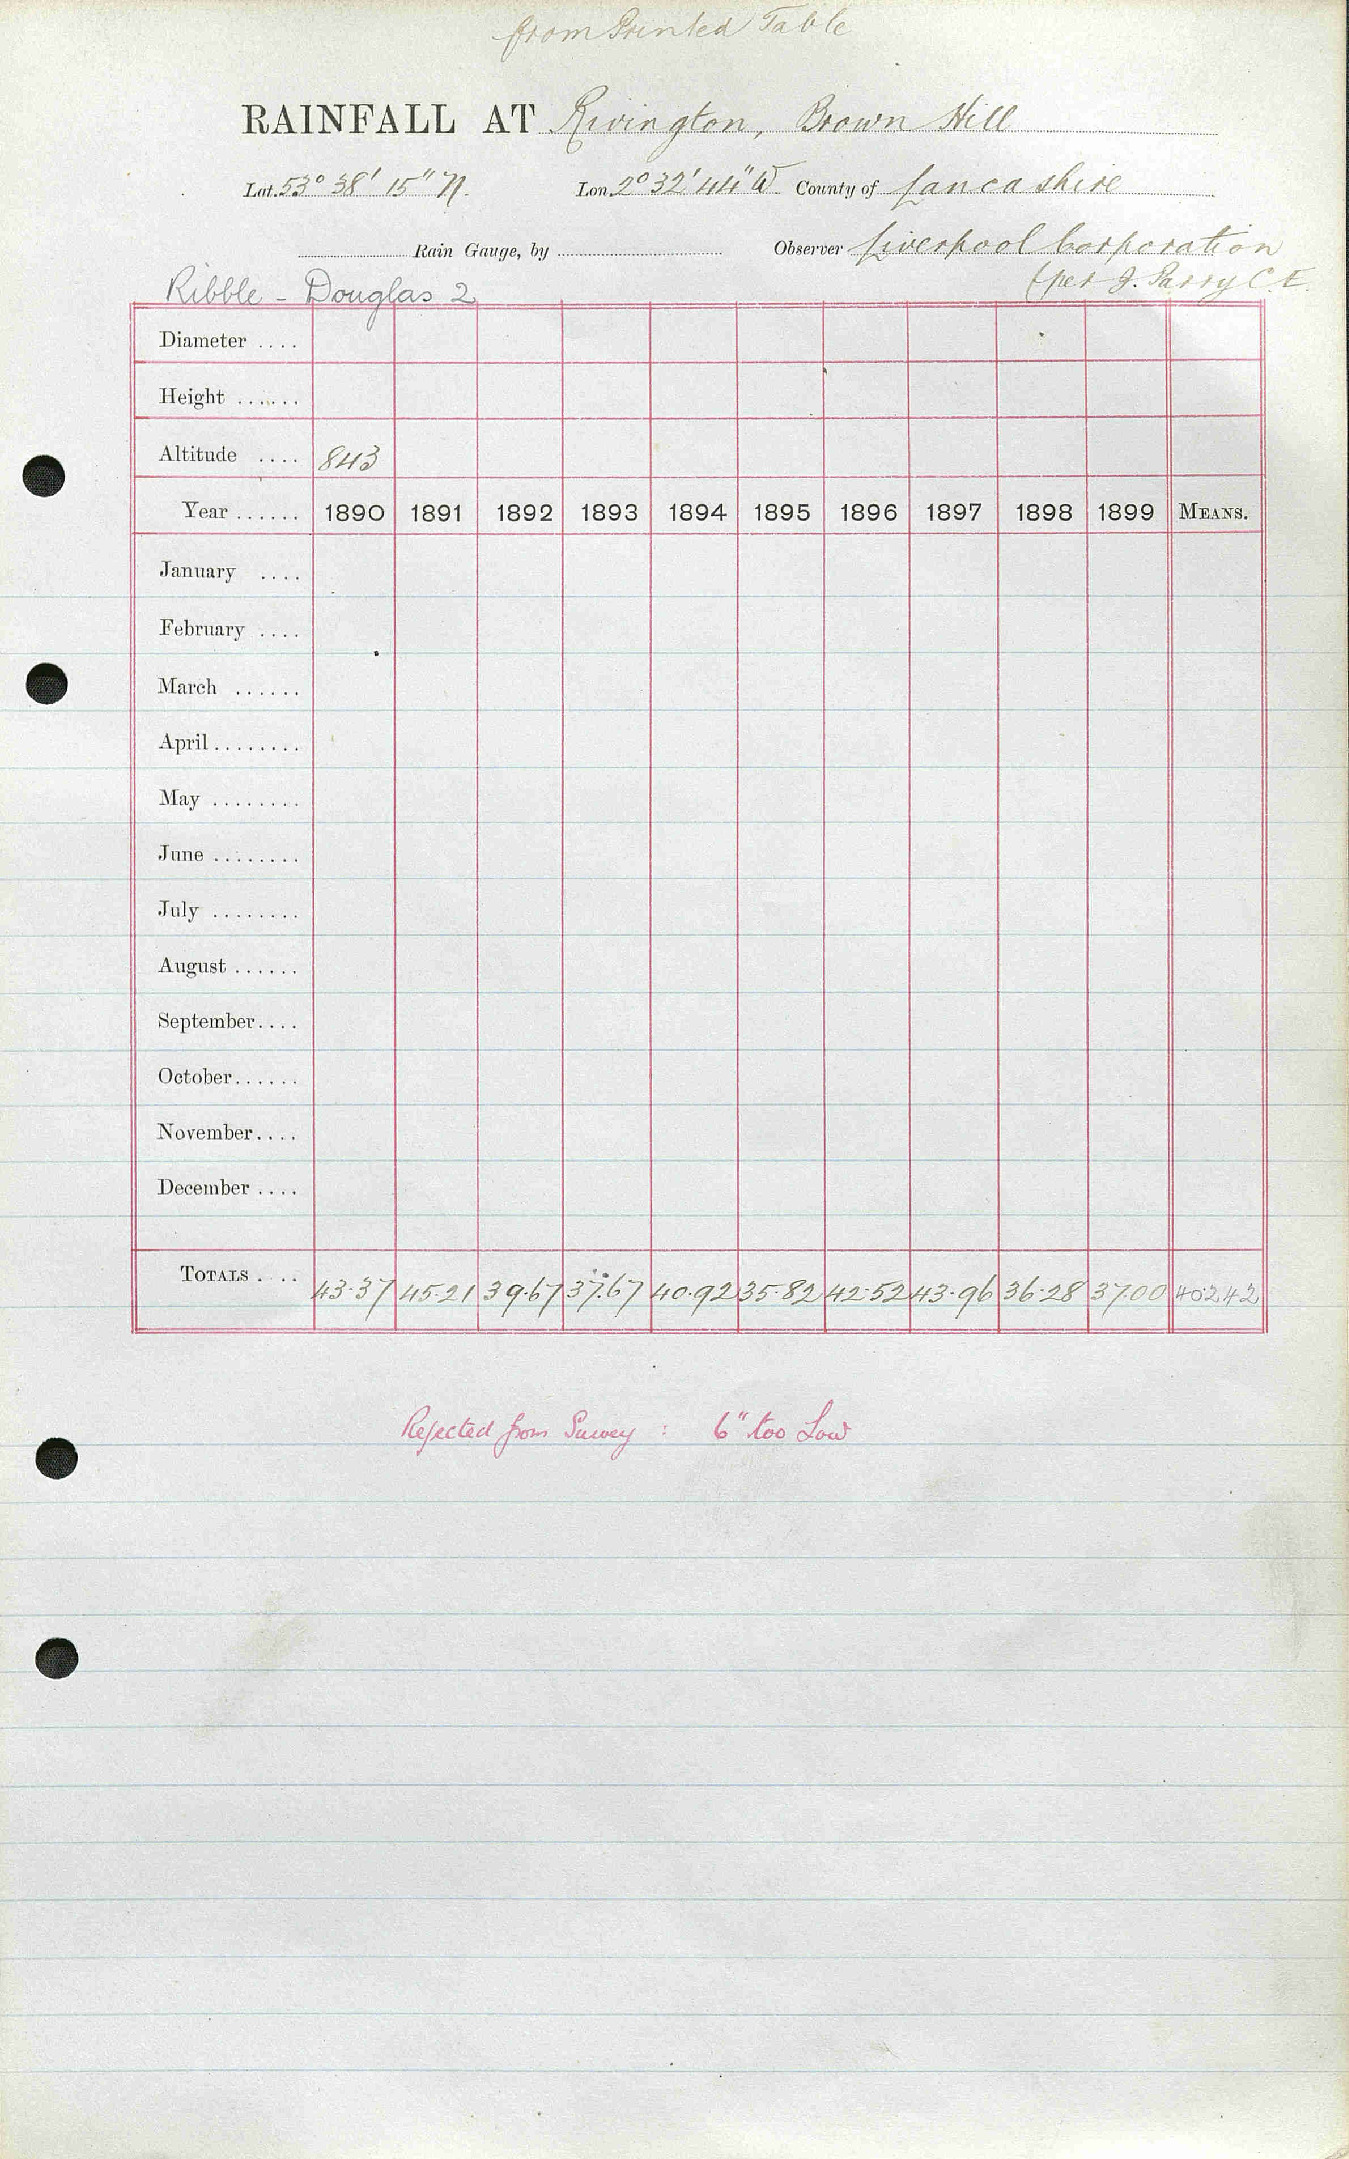 from Printed Table
RAINFALL AT Rivington, Brown Hill
Lat. 53° 38' 15" N. Lon. 2° 32' 44" W. County of Lancashire
Rain Gauge, by Observer Liverpool Corporation
(per J. Parry C.E.
Ribble - Douglas 2
Diameter ....
Height ......
Altitude .... 843
Year ...... 1890 1891 1892 1893 1894 1895 1896 1897 1898 1899 MEANS.
January ....
February ....
March ......
April ........
May ........
June ........
July ........
August ......
September ....
October ......
November ....
December ....
TOTALS .... 43.37 45.21 39.67 37.67 40.92 35.82 42.52 43.96 36.28 37.00 40.242
Rejected from Survey : 6" too Low